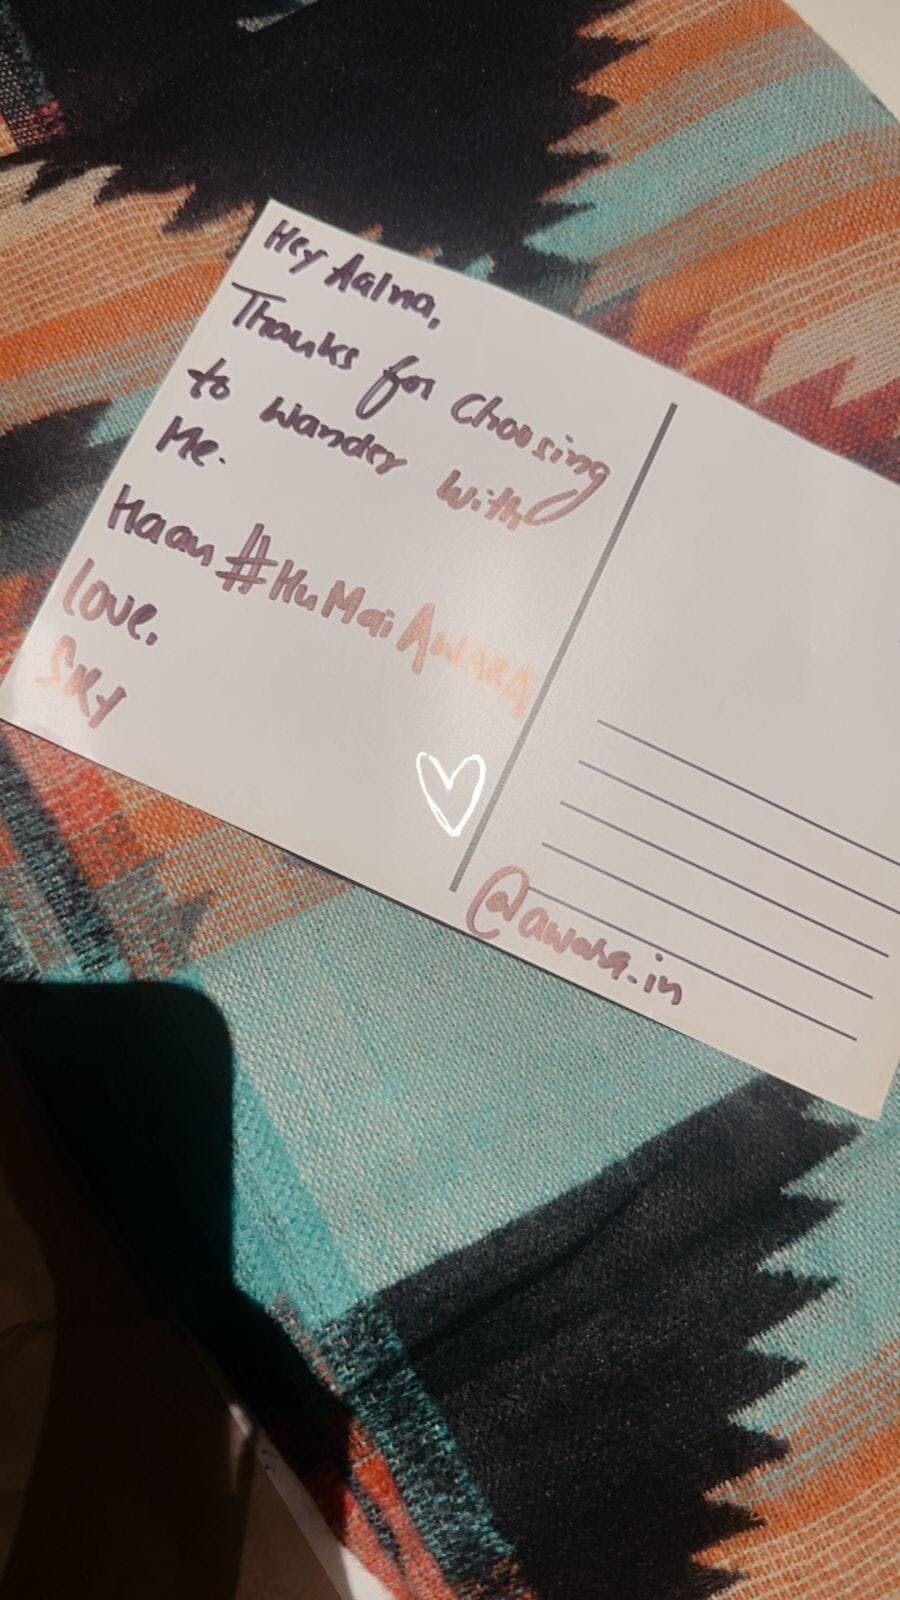 Hey Aalna,
Thanks for Choosing
to wander with
Me.
Haan #HuMaiAwARA
love,
SKY
@awara.in